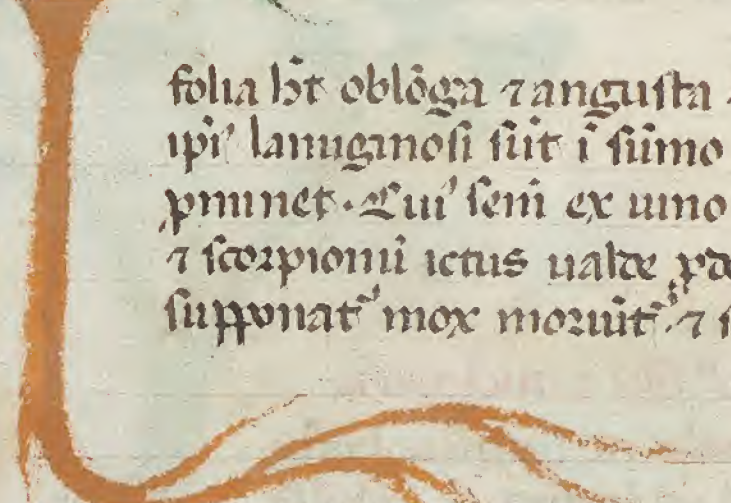 folia hñt oblõga ⁊ angusta
ipi⁹ lanuginosi sũt ĩ sũmo
ꝓminet. Cui⁹ semĩ ex uino
⁊ scorpionũ ictus ualde
supponat᷑ mox moriũt᷑. ⁊